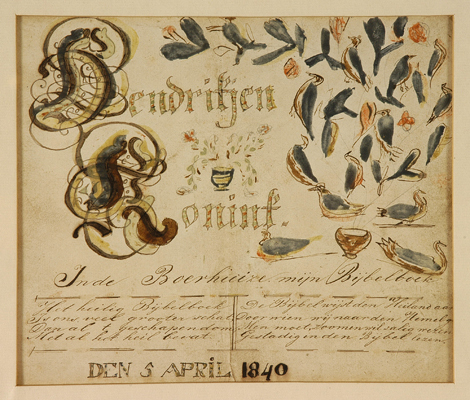 Hendrikjen
onink.
In de Boerhuize, mijn Bijbelboek
Het heilig Bijbelboek
Is ons grooter schat
Dan al 't geschapendom
Met al het heil bevat.
De Bijbel wijst den Heiland aan
Door wien wij naar den Hemel
Men moet, zoo men wil salig wezen
Gestadig in den Bijbel lezen
DEN 5 APRIL 1840